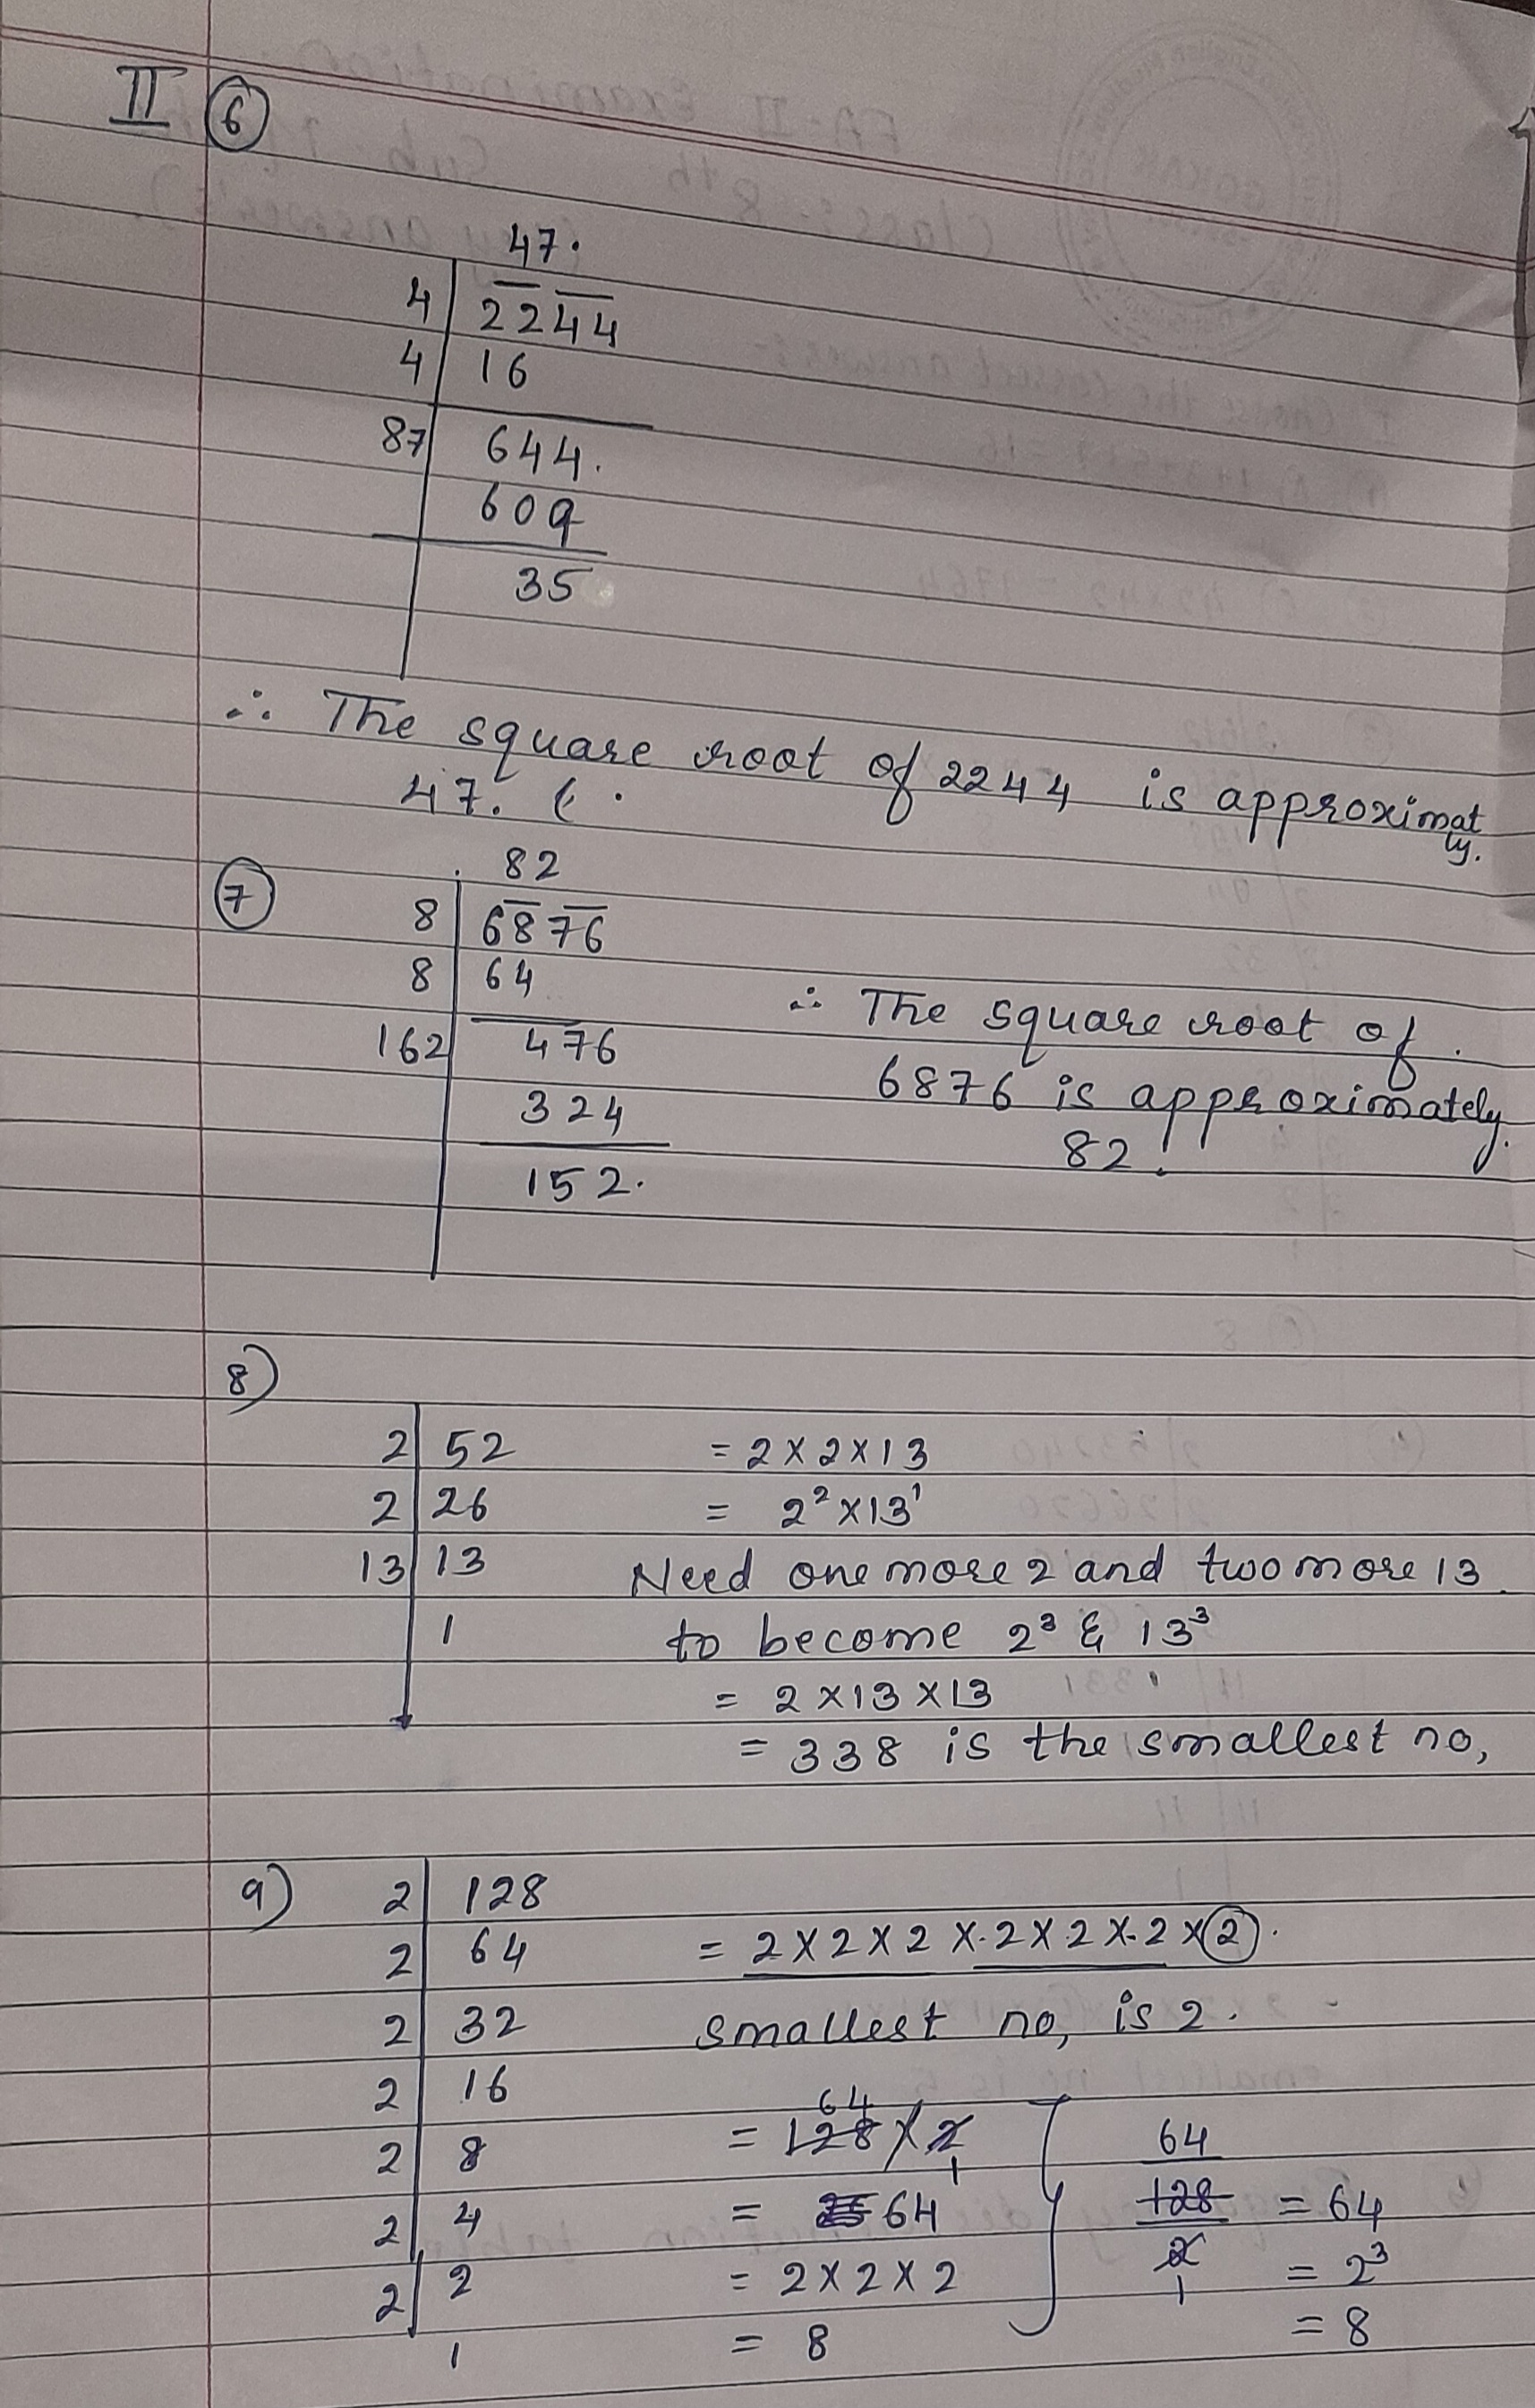 II 6
47.
4 2244
4 16
87 644.
609
35
∴ The square root of 2244 is approximatly.
47.
7
82
8 6876
8 64
162 476
324
152.
∴ The square root of
6876 is approximately.
82.
8)
2 52 = 2 x 2 x 13
2 26 = 2² x 13¹
13 13 Need one more 2 and two more 13
1 to become 2³ & 13³
= 2 x 13 x 13
= 338 is the smallest no,
9) 2 128
2 64 = 2 x 2 x 2 x 2 x 2 x 2 x 2.
2 32 smallest no, is 2.
2 16
2 8 = 128 x 2 64 1
2 4 = 64
2 2 = 2 x 2 x 2
1 = 8
64
128 = 64
2 = 2³
1 = 8